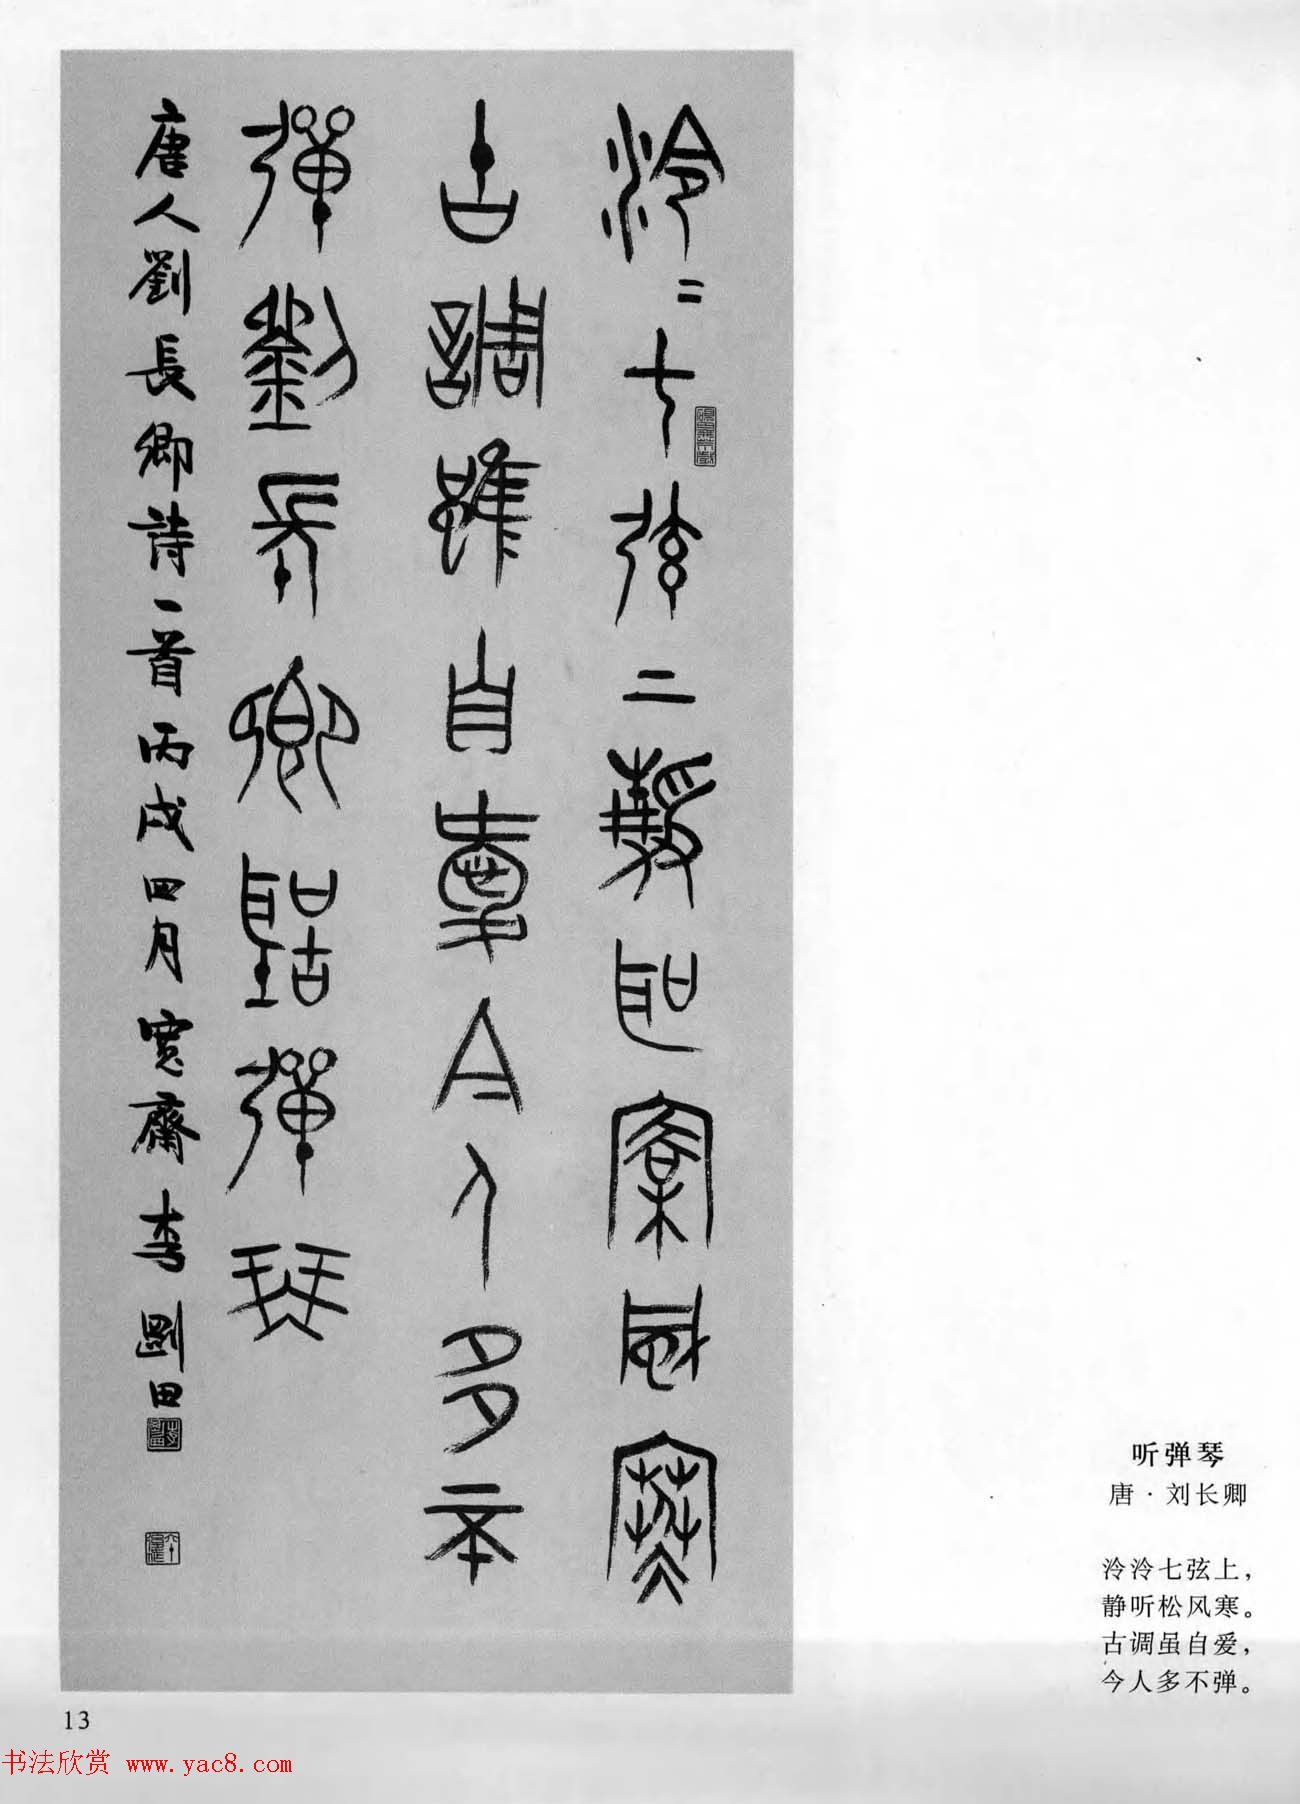 泠〻七弦上靜聽松風寒
古調雖自愛今人多不
彈劉長卿聽彈琴
唐人劉長卿詩一首丙戌四月寬齋李剛田
听弹琴
唐·刘长卿
泠泠七弦上，
静听松风寒。
古调虽自爱，
今人多不弹。
13
书法欣赏 www.yac8.com